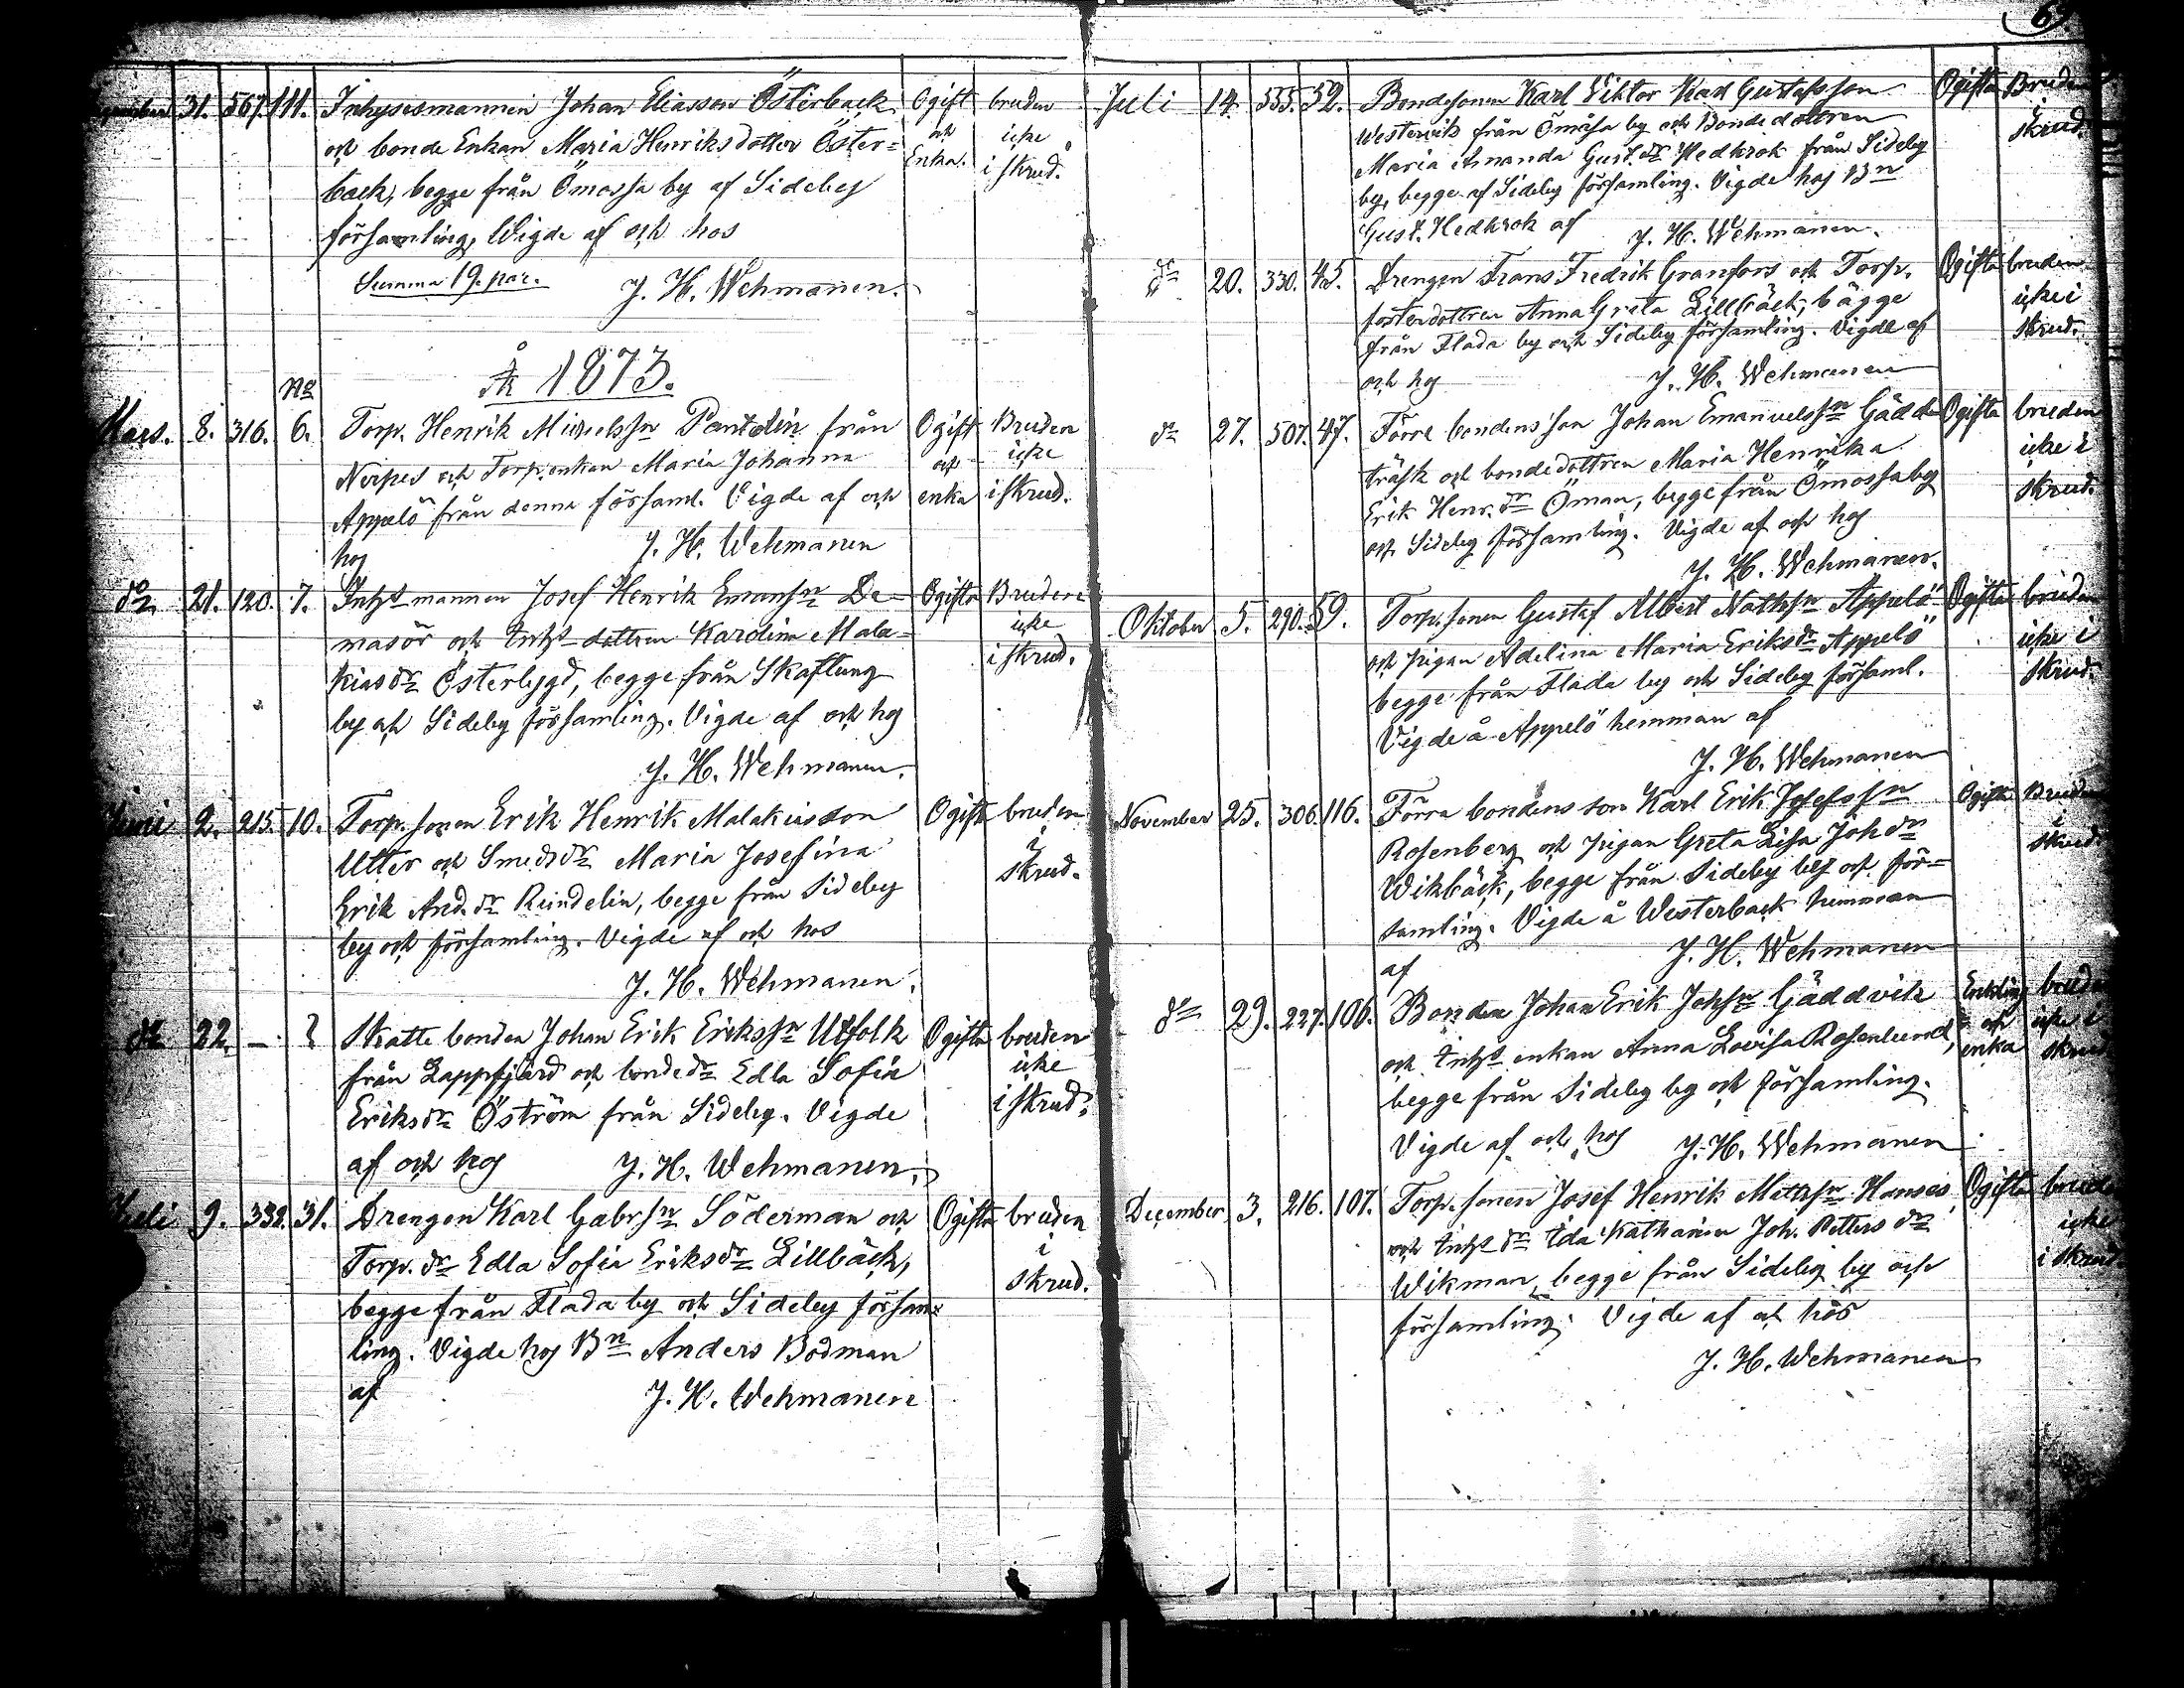 31. 567. 111. Inhysesmannen Johan Eliasson Österback Ogift bruden
och bonde Enkan Maria Henriksdotter Öster= och icke
back, begge från Ömossa by af Sideby Enka. i skrud.
församling, Wigde af och hos
Summa 19. par. J. H. Wehmanen.
År 1873.
No
Mars. 8. 316. 6. Torp. Henrik Michelssn Pantdin från Ogift Bruden
Nerpes och Torp. enkan Maria Johanna och icke
Appelö från denna församl. Vigde af och enka i skrud.
hos J. H. Wehmanen
do 21. 120. 7. Inhs mannen Josef Henrik Emanssn De= Ogifta Bruden
masör och Inhs dottren Karolina Mala= icke
kiasdr Österbygd, begge från Skaftung i skrud.
by och Sideby församling. Vigde af och hos
J. H. Wehmanen.
Juni 2. 215. 10. Torp. sonen Erik Henrik Malakiasson Ogifta bruden
Utter och Smedsdr Maria Josefina i
Erik And. dr Rundelin, begge från Sideby skrud.
by och församling. Vigde af och hos
J. H. Wehmanen.
do 22. — ? Skatte bonden Johan Erik Erikssn Utfolk Ogifta bruden
från Lappfjärd och bondedr Edla Sofia icke
Eriksdr Öström från Sideby. Vigde i skrud.
af och hos J. H. Wehmanen.
Juli 9. 332. 31. Drengen Karl Gabrsn Söderman och Ogifta bruden
Torp. dr Edla Sofia Eriksdr Lillbäck, i
begge från Flada by och Sideby försam= skrud.
ling. Vigde hos Bn Anders Bodman
af J. H. Wehmanen
Juli 14. 555. 52. Bondesonen Karl Viktor Karl Gustafsson Ogifta Bruden
Westervik från Ömossa by och Bondedottren i
Maria Amanda Gust. dr Hedkrok från Sideby skrud.
by, begge af Sideby församling. Vigde hos Bn
Gust. Hedkrok af J. H. Wehmanen.
do 20. 330. 45. Drengen Frans Fredrik Granfors och Torp. Ogifta bruden
fosterdottren Anna Greta Lillbäck, bägge icke i
från Flada by och Sideby församling. Vigde af skrud.
och hos J. H. Wehmanen
do 27. 507. 47. Förre bondens son Johan Emanuelssn Gädde Ogifta bruden
träsk och bondedottren Maria Henrika icke i
Erik Henr. dr Öman, begge från Ömossa by skrud.
och Sideby församling. Vigde af och hos
J. H. Wehmanen.
Oktober 5. 290. 59. Torp. sonen Gustaf Albert Mathssn Appelö Ogifta bruden
och pigan Adelina Maria Eriksdr Appelö icke i
begge från Flada by och Sideby församl. skrud.
Vigde å Appelö hemman af
J. H. Wehmanen
November 25. 306. 116. Förra bondens son Karl Erik Josefssn Ogifta Bruden
Rosenberg och pigan Greta Lisa Joh dr i
Wikbäck, begge från Sideby by och för= skrud.
samling. Vigde å Westerback hemman
af J. H. Wehmanen
do 29. 227. 106. Bonden Johan Erik Johssn Gäddvik Enkling bruden
och Inhs enkan Anna Lovisa Rosenlund, och icke i
begge från Sideby by och församling. enka skrud
Vigde af och hos J. H. Wehmanen
December 3. 216. 107. Torp. sonen Josef Henrik Mattssn Hanses Ogifta bruden
och Inhs dr Ida Katharina Joh. Petters dr icke
Wikman, begge från Sideby by och i skrud
församling. Vigde af och hos
J. H. Wehmanen